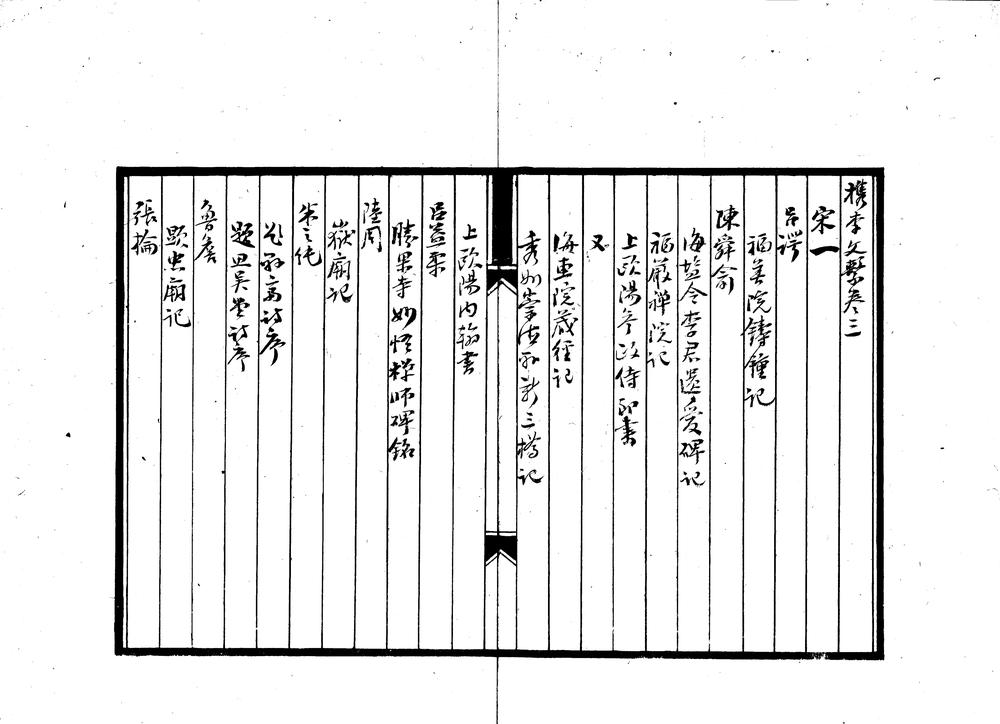 檇李文繫卷三
宋一
呂諤
福善院鑄鐘記
陳舜俞
海鹽令李君遺愛碑記
福嚴禪院記
上歐陽參政侍郎書
又
海惠院藏經記
秀州崇德縣新三橋記
上歐陽內翰書
呂益柔
勝果寺妙悟禪師碑銘
陸周
嶽廟記
朱之純
詩序
題思吳堂詩序
魯詹
顯忠廟記
張掄